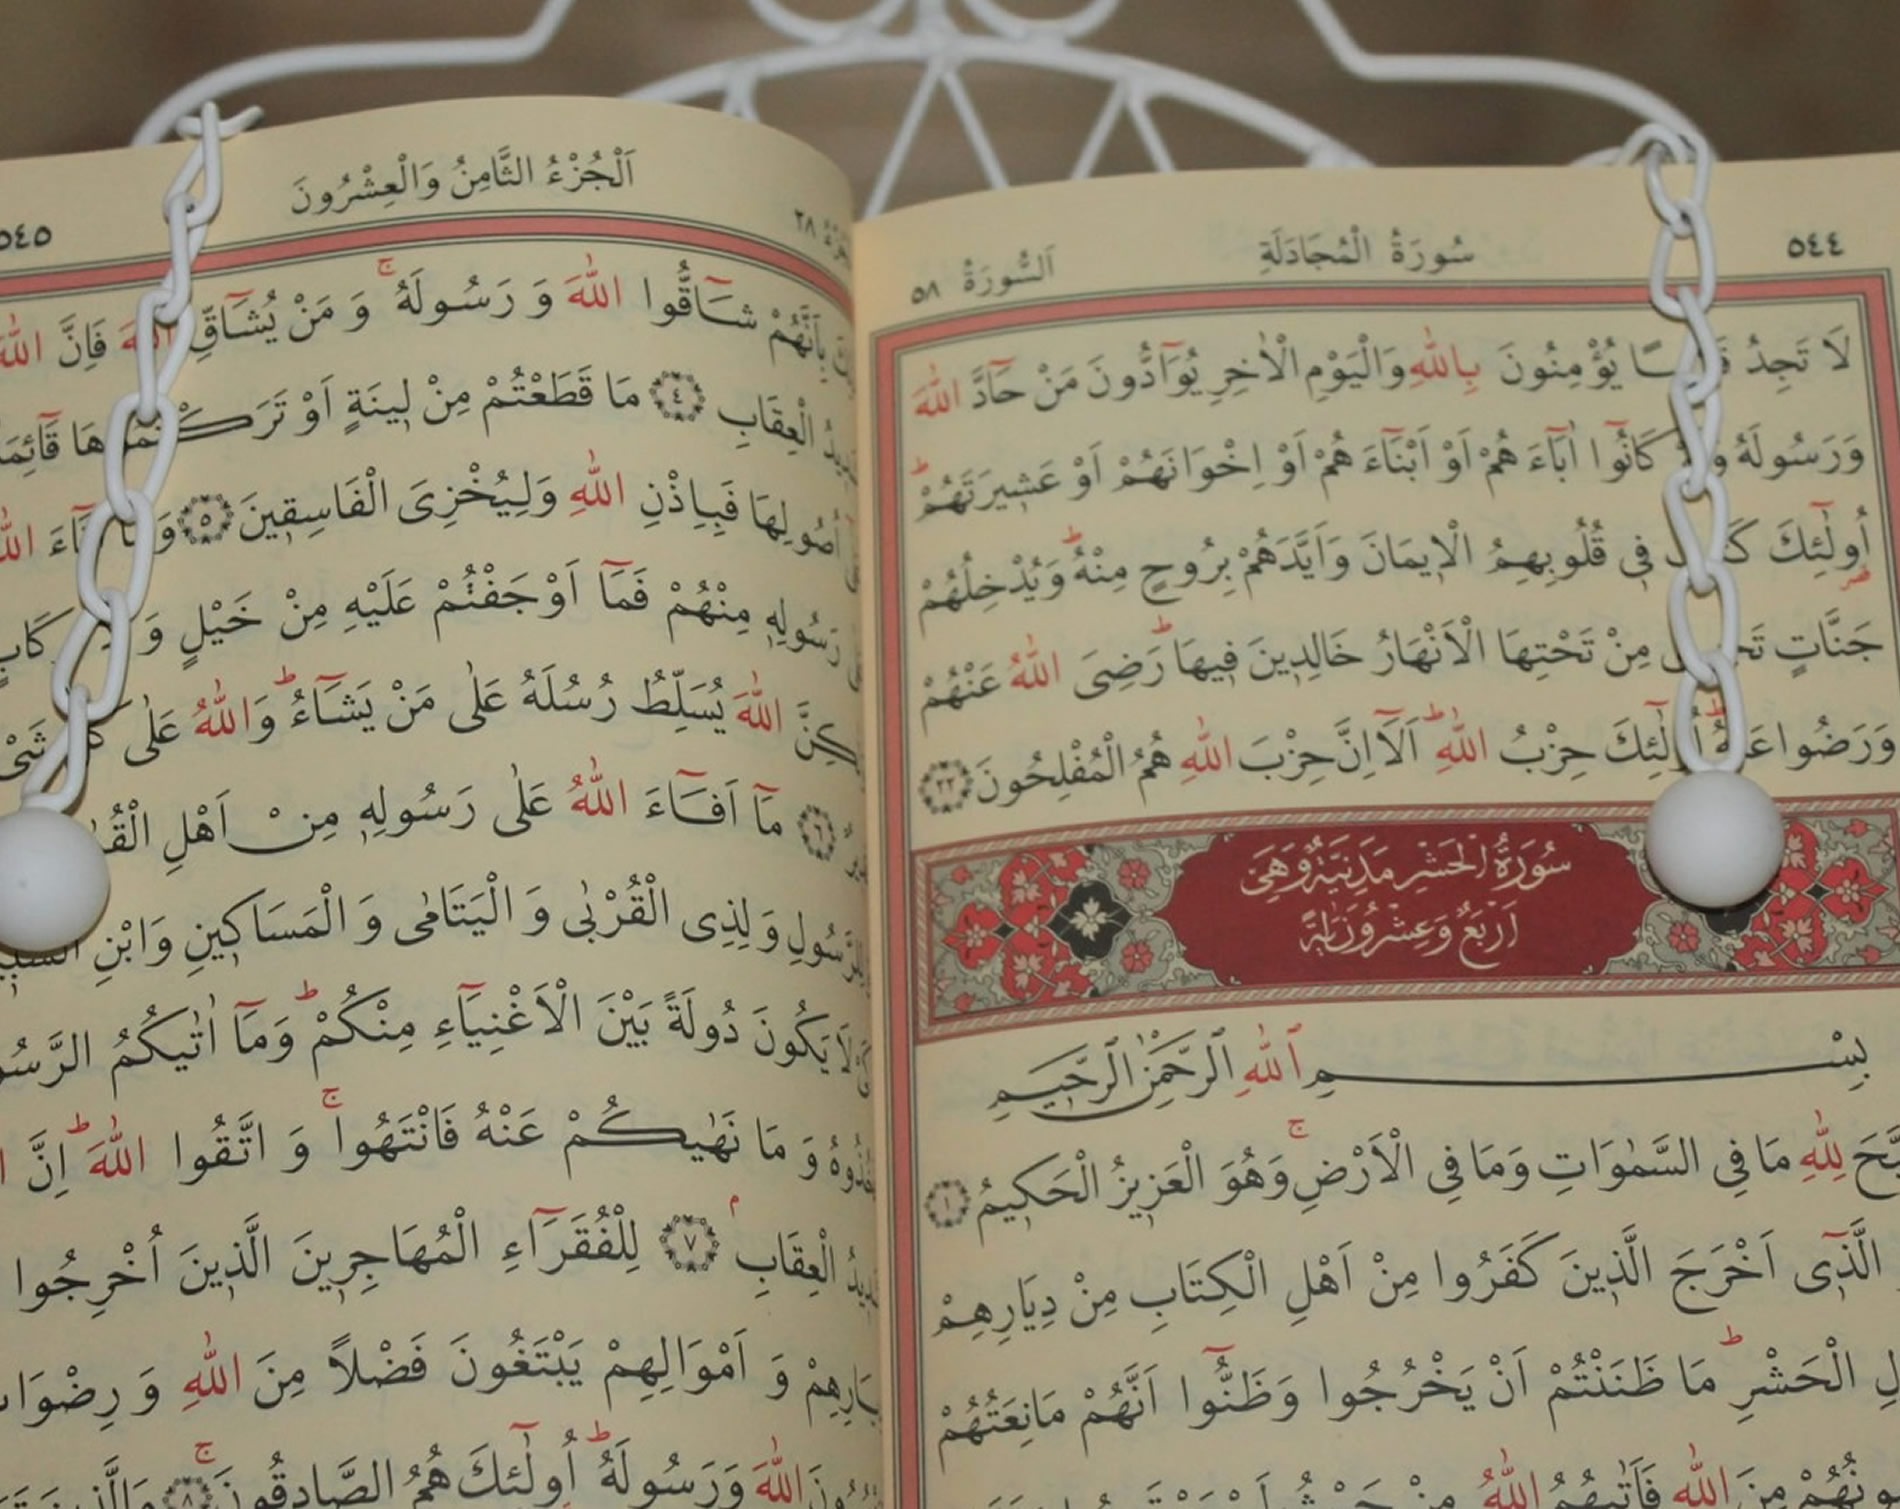 ٥٤٤
سُورَةُ الْمُجَادَلَةِ
اَلسُّورَةُ ٥٨
لَا تَجِدُ يُؤْمِنُونَ بِاللّٰهِ وَالْيَوْمِ الْاٰخِرِ يُوَٓادُّونَ مَنْ حَٓادَّ اللّٰهَ
وَرَسُولَهُ كَانُٓوا اٰبَٓاءَهُمْ اَوْ اَبْنَٓاءَهُمْ اَوْ اِخْوَانَهُمْ اَوْ عَشٖيرَتَهُمْؕ
اُولٰٓئِكَ فٖي قُلُوبِهِمُ الْاٖيمَانَ وَاَيَّدَهُمْ بِرُوحٍ مِنْهُؕ وَيُدْخِلُهُمْ
جَنَّاتٍ مِنْ تَحْتِهَا الْاَنْهَارُ خَالِدٖينَ فٖيهَاؕ رَضِىَ اللّٰهُ عَنْهُمْ
وَرَضُوا اُولٰٓئِكَ حِزْبُ اللّٰهِؕ اَلَٓا اِنَّ حِزْبَ اللّٰهِ هُمُ الْمُفْلِحُونَ ﴿٢٢﴾
سُورَةُ الْحَشْرِ مَدَنِيَّةٌ وَهِىَ
اَرْبَعٌ وَعِشْرُونَ اٰيَةً
بِسْمِ اللّٰهِ الرَّحْمٰنِ الرَّحٖيمِ
لِلّٰهِ مَا فِي السَّمٰوَاتِ وَمَا فِي الْاَرْضِۚ وَهُوَ الْعَزٖيزُ الْحَكٖيمُ ﴿١﴾
الَّذٖٓى اَخْرَجَ الَّذٖينَ كَفَرُوا مِنْ اَهْلِ الْكِتَابِ مِنْ دِيَارِهِمْ
الْحَشْرِؕ مَا ظَنَنْتُمْ اَنْ يَخْرُجُوا وَظَنُّٓوا اَنَّهُمْ مَانِعَتُهُمْ
مِنَ اللّٰهِ فَاَتٰيهُمُ اللّٰهُ مِنْ حَيْثُ
اَلْجُزْءُ الثَّامِنُ وَالْعِشْرُونَ
٥٤٥
بِاَنَّهُمْ شَٓاقُّوا اللّٰهَ وَرَسُولَهُۚ وَمَنْ يُشَٓاقِّ اللّٰهَ فَاِنَّ اللّٰهَ
الْعِقَابِ ﴿٤﴾ مَا قَطَعْتُمْ مِنْ لٖينَةٍ اَوْ تَرَكْتُمُوهَا
اُصُولِهَا فَبِاِذْنِ اللّٰهِ وَلِيُخْزِىَ الْفَاسِقٖينَ ﴿٥﴾
رَسُولِهٖ مِنْهُمْ فَمَٓا اَوْجَفْتُمْ عَلَيْهِ مِنْ خَيْلٍ
اللّٰهَ يُسَلِّطُ رُسُلَهُ عَلٰى مَنْ يَشَٓاءُؕ وَاللّٰهُ عَلٰى
﴿٦﴾ مَٓا اَفَٓاءَ اللّٰهُ عَلٰى رَسُولِهٖ مِنْ اَهْلِ
وَلِذِى الْقُرْبٰى وَالْيَتَامٰى وَالْمَسَاكٖينِ وَابْنِ
لَا يَكُونَ دُولَةً بَيْنَ الْاَغْنِيَٓاءِ مِنْكُمْؕ وَمَٓا اٰتٰيكُمُ
وَمَا نَهٰيكُمْ عَنْهُ فَانْتَهُواۚ وَاتَّقُوا اللّٰهَؕ اِنَّ
الْعِقَابِۘ ﴿٧﴾ لِلْفُقَرَٓاءِ الْمُهَاجِرٖينَ الَّذٖينَ اُخْرِجُوا
وَاَمْوَالِهِمْ يَبْتَغُونَ فَضْلًا مِنَ اللّٰهِ
اللّٰهَ وَرَسُولَهُؕ اُولٰٓئِكَ هُمُ الصَّادِقُونَۚ ﴿٨﴾